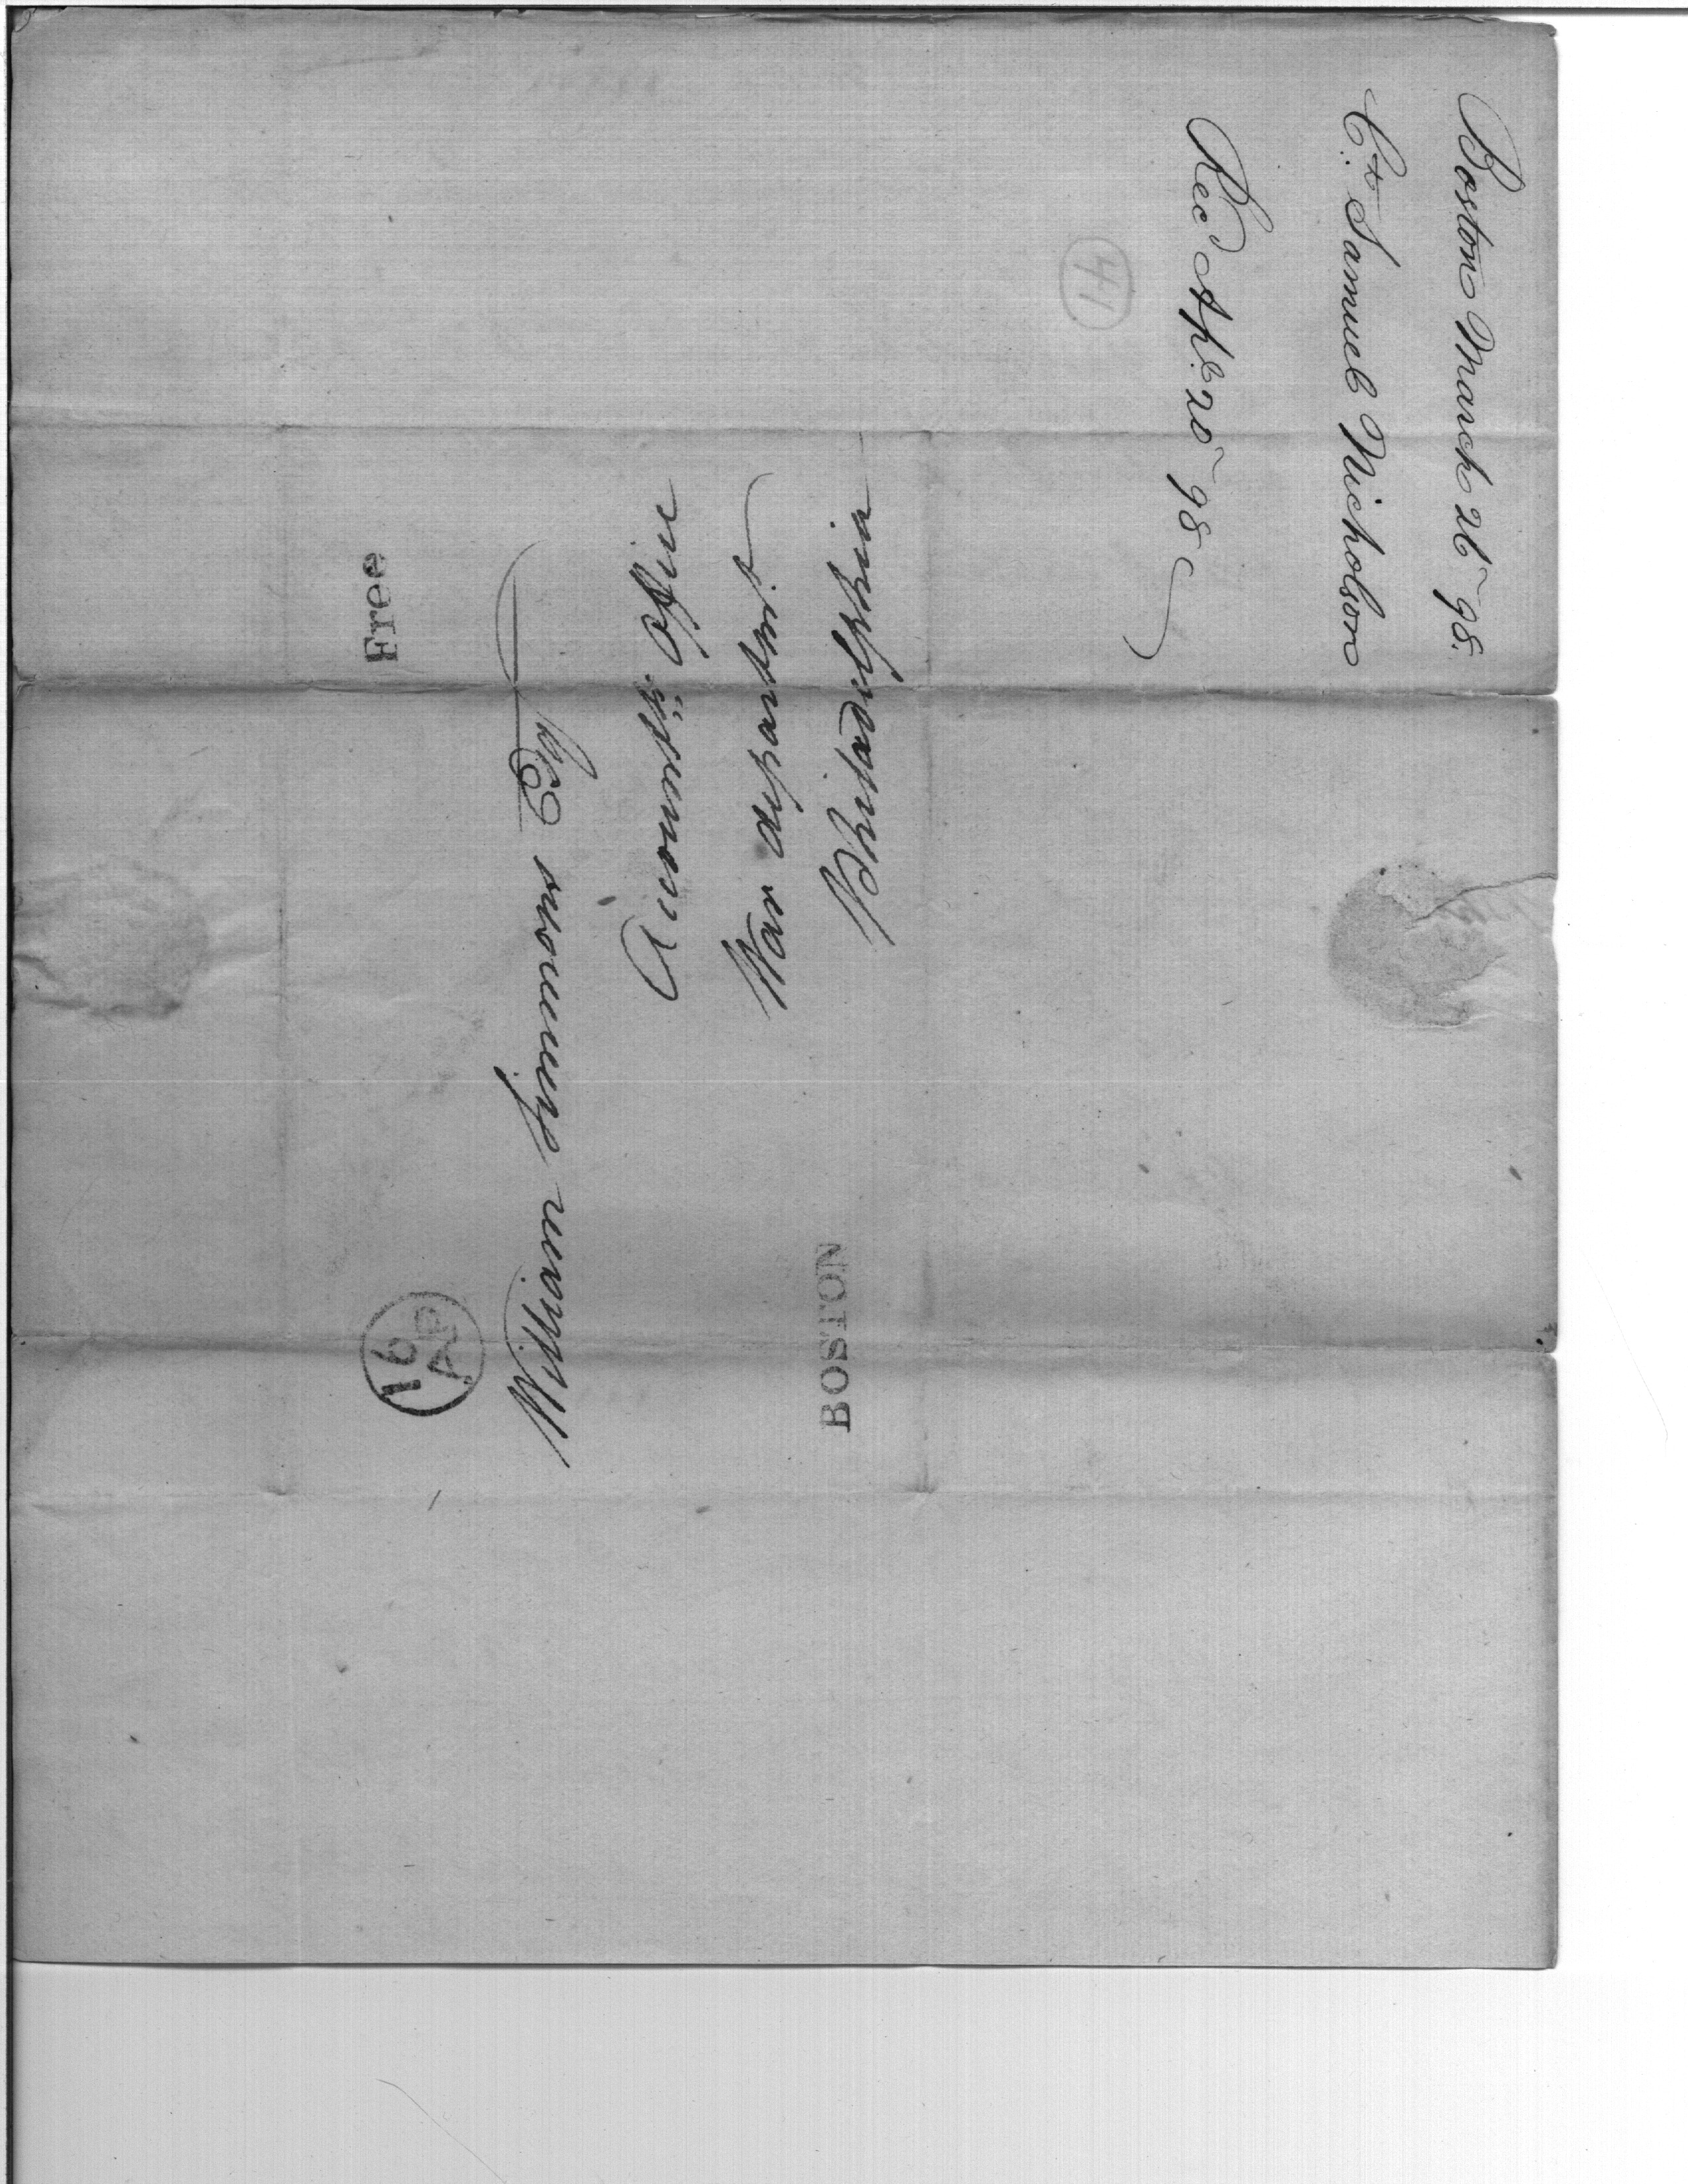 Boston March 26 98.
Ct. Samuel Nicholson
Recd Apl. 20 98
41
Free
16
AP
William Simmons Esq
Accomptts. Office
War department
Philadelphia
BOSTON